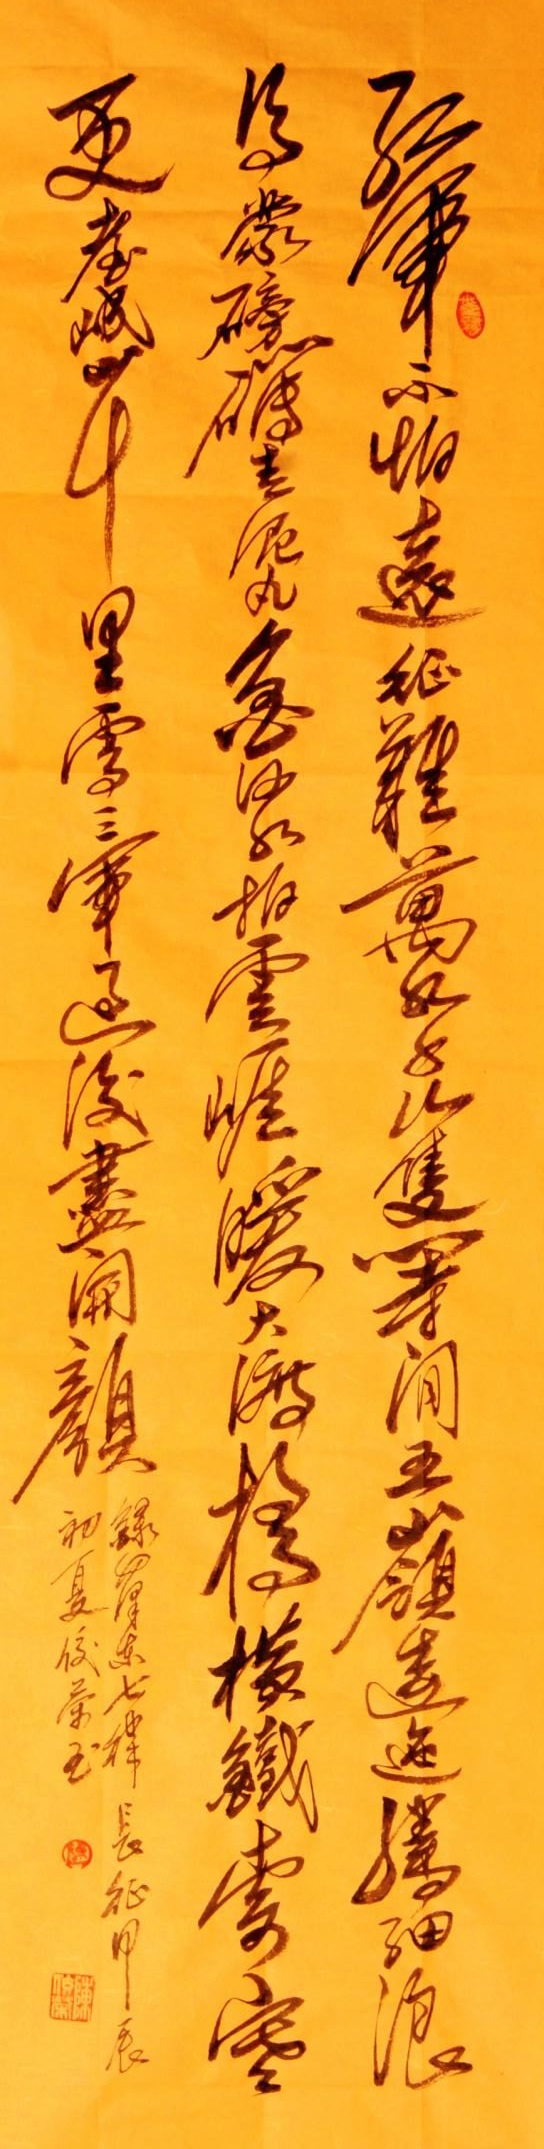 紅軍不怕遠征難萬水千山隻等閒五嶺逶迤騰細浪
烏蒙磅礴走泥丸金沙水拍雲崖暖大渡橋橫鐵索寒
更喜岷山千里雪三軍過後盡開顏
錄毛澤東七律長征甲辰
初夏